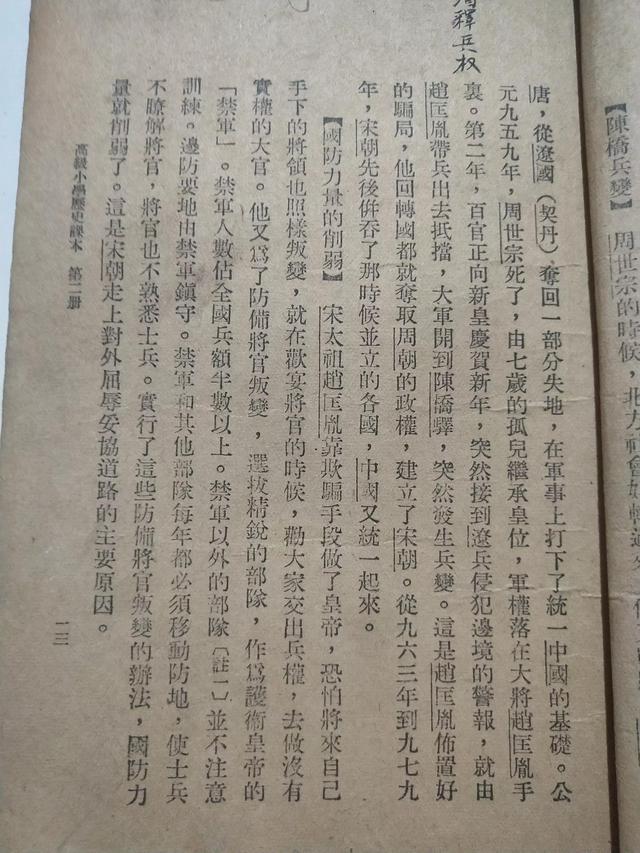 【陳橋兵變】 周世宗的時候，北方社會好轉
釋兵权
唐，從遼國（契丹）奪回一部分失地，在軍事上打下了統一中國的基礎。公
元九五九年，周世宗死了，由七歲的孤兒繼承皇位，軍權落在大將趙匡胤手
裏。第二年，百官正向新皇慶賀新年，突然接到遼兵侵犯邊境的警報，就由
趙匡胤帶兵出去抵擋，大軍開到陳橋驛，突然發生兵變。這是趙匡胤佈置好
的騙局，他回轉國都就奪取周朝的政權，建立了宋朝。從九六三年到九七九
年，宋朝先後併吞了那時候並立的各國，中國又統一起來。
【國防力量的削弱】 宋太祖趙匡胤靠欺騙手段做了皇帝，恐怕將來自己
手下的將領也照樣叛變，就在歡宴將官的時候，勸大家交出兵權，去做沒有
實權的大官。他又爲了防備將官叛變，選拔精銳的部隊，作爲護衞皇帝的
「禁軍」。禁軍人數佔全國兵額半數以上。禁軍以外的部隊〔註一〕並不注意
訓練。邊防要地由禁軍鎮守。禁軍和其他部隊每年都必須移動防地，使士兵
不瞭解將官，將官也不熟悉士兵。實行了這些防備將官叛變的辦法，國防力
量就削弱了。這是宋朝走上對外屈辱妥協道路的主要原因。
高級小學歷史課本 第二册
一三